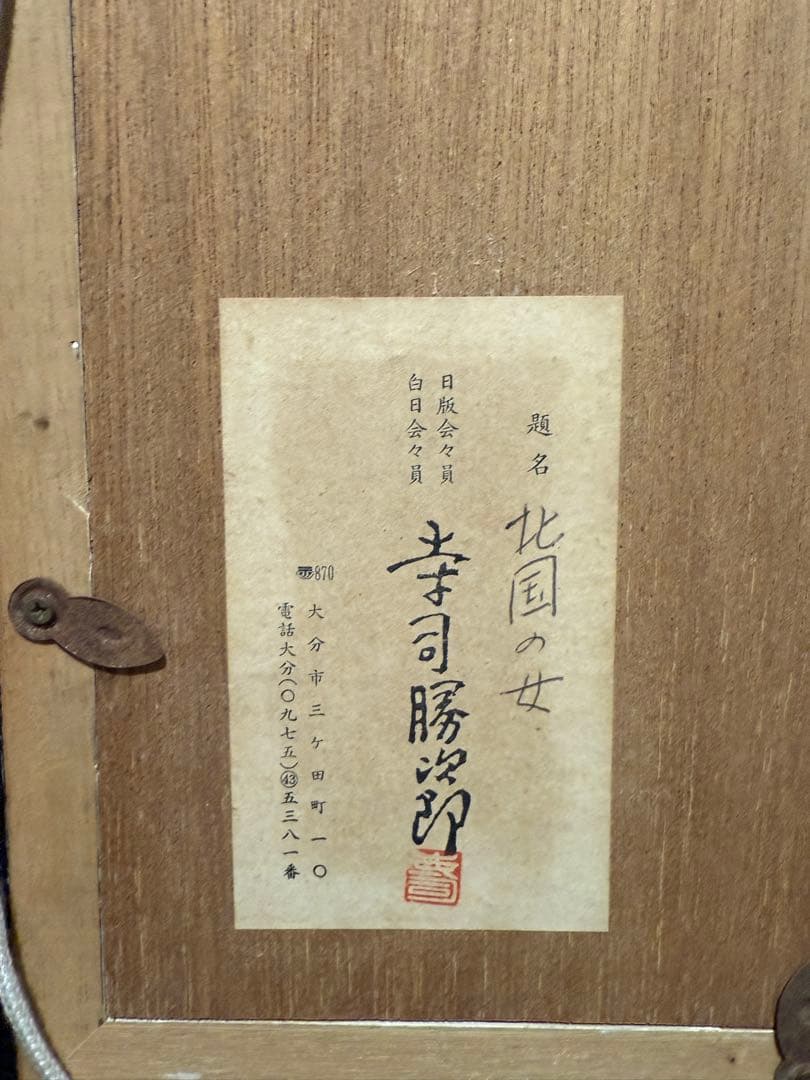 題名 北国の女
日版会々員
白日会々員
幸司勝次郎
幸司
〒870 大分市三ケ田町一〇
電話大分(〇九七五)㊸五三八一番